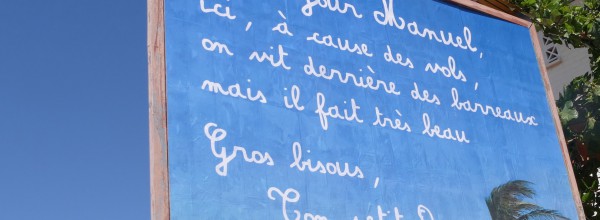 jour Manuel,
ici, à cause des vols,
on vit derrière des barreaux
mais il fait très beau
Gros bisous,
Ton petit